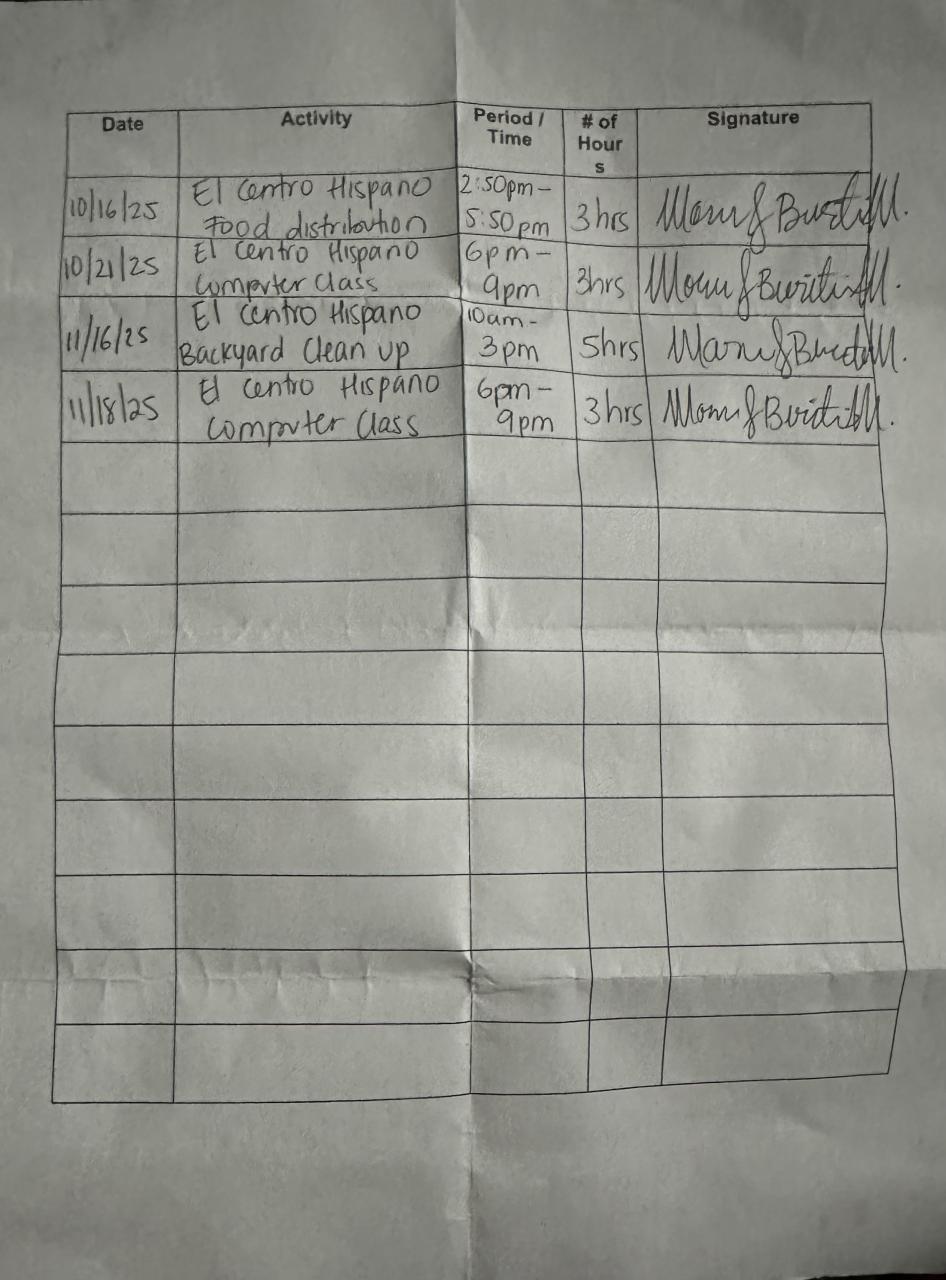 Date Activity Period / Time # of Hours Signature
10/16/25 El Centro Hispano 2:50pm-
Food distribution 5:50pm 3hrs
10/21/25 El Centro Hispano 6pm-
Computer Class 9pm 3hrs
11/16/25 El Centro Hispano 10am-
Backyard Clean up 3pm 5hrs
11/18/25 El Centro Hispano 6pm-
Computer Class 9pm 3hrs